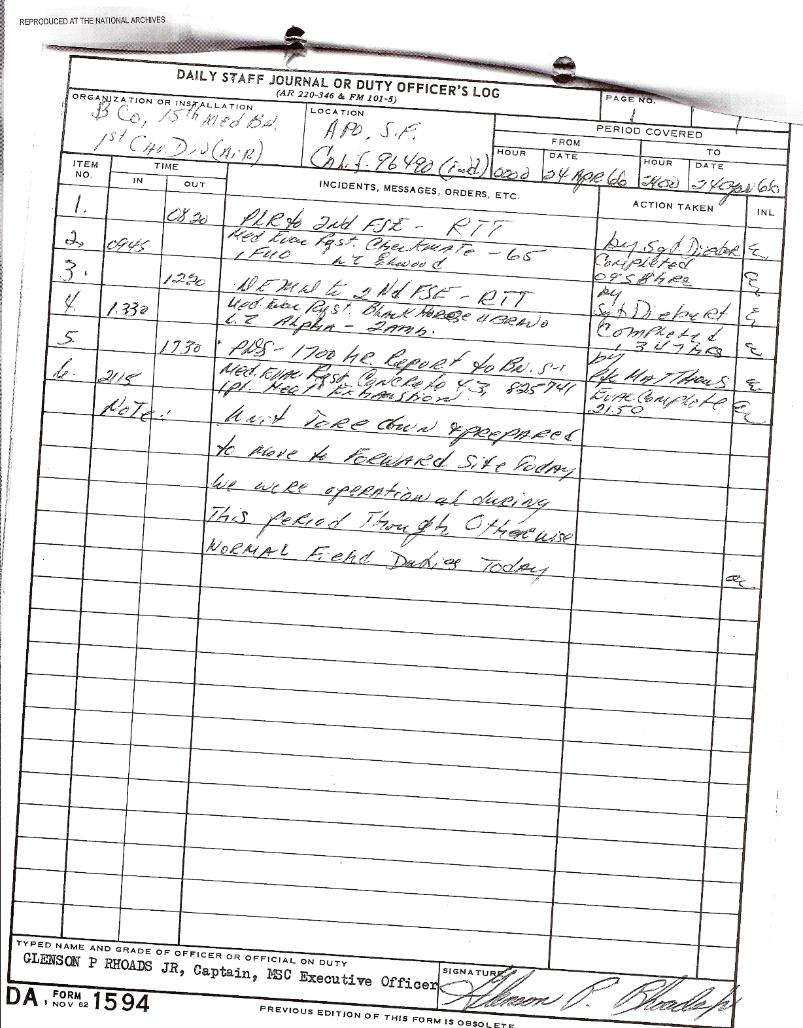 REPRODUCED AT THE NATIONAL ARCHIVES
DAILY STAFF JOURNAL OR DUTY OFFICER'S LOG
(AR 220-346 & FM 101-5)
PAGE NO.
1
ORGANIZATION OR INSTALLATION
B Co, 15th Med Bn.
1st Cav Div (Air)
LOCATION
APO, S.F.
Calif. 96490 (Ind)
PERIOD COVERED
FROM
TO
HOUR
DATE
HOUR
DATE
0000
24 Apr 66
2400
24 Apr 66
ITEM NO.
TIME
IN
OUT
INCIDENTS, MESSAGES, ORDERS, ETC.
ACTION TAKEN
INL
1. 0830 PLR to 2nd FSE - RTT by Sgt
2. 0945 Med Evac Rqst. Checkmate - 65 Completed
1 LZ 0958 hrs
3. 1230 to 2nd FSE - RTT by
Sgt
4. 1330 Med. Evac Rqst. Black Horse 4 Bravo
L.Z. Alpha - 2 Amb. Completed
1347 hrs
5. 1730 PDS - 1700 hr Report to Bn. S-1 by
Pfc Matthews
6. 2115 Med. Evac Rqst. Concrete 43, 825741 Evac Complete
1 pt. Heat Exhaustion 2150
Note: Unit Tore down & prepared
to move to Forward Site Today
We were operational during
This period Though Otherwise
Normal Field Duties Today
TYPED NAME AND GRADE OF OFFICER OR OFFICIAL ON DUTY
GLENSON P RHOADS JR, Captain, MSC Executive Officer
SIGNATURE
Glenson P. Rhoads Jr
DA FORM 1 NOV 62 1594
PREVIOUS EDITION OF THIS FORM IS OBSOLETE